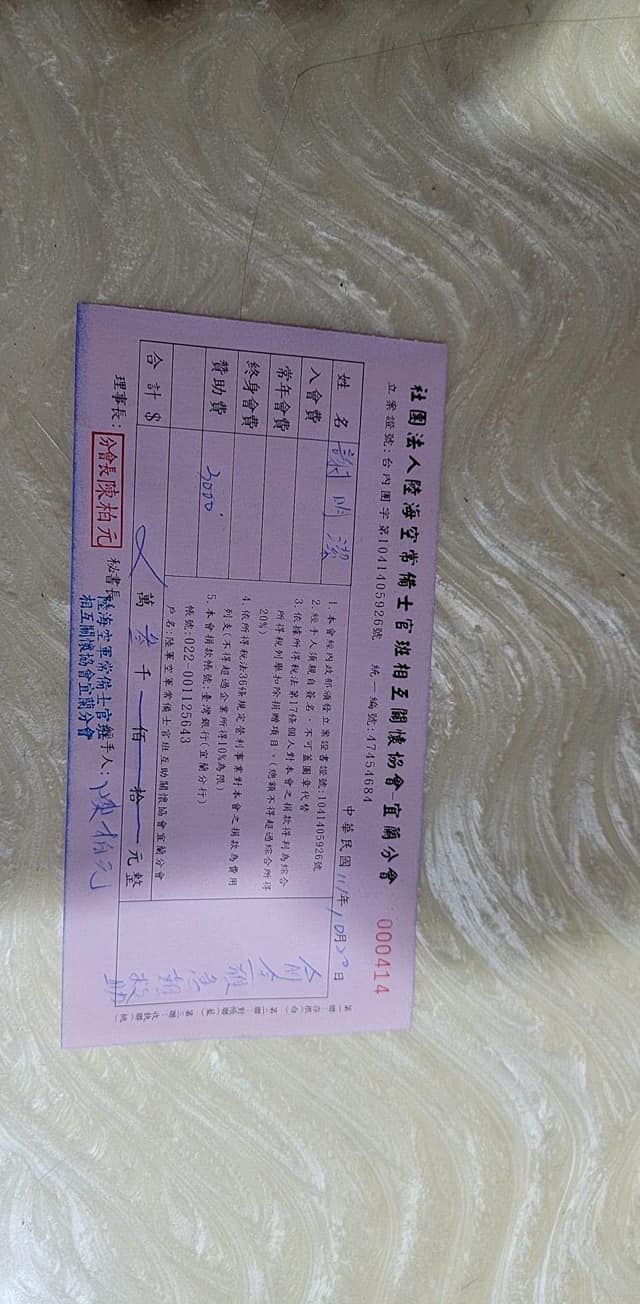 社團法人陸海空常備士官班相互關懷協會宜蘭分會
000414
立案證號:台內團字第1041405926號 統一編號:47454684
中華民國111年10月20日
姓名 謝明潔
入會費
常年會費
終身會費
贊助費 3000
合計$ 萬 叁千 佰 拾 元整
1.本會經內政部頒發立案證書證號:1041405926號
2.經手人須親自簽名,不可蓋圖章代替
3.依據所得稅法第17條個人對本會之捐款得列為綜合
所得稅列舉扣除捐贈項目。(總額不得超過綜合所得
20%)
4.依所得稅法36條規定營利事業對本會之捐款為費用
列支(不得超過企業所得10%為限)
5.本會捐款帳號:臺灣銀行(宜蘭分行)
帳號:022-001125643
戶名:陸軍空軍常備士官班互助關懷協會宜蘭分會
急
救
助
理事長: 分會長 陳柏元 秘書長: 經手人: 陳柏元
陸海空軍常備士官班
相互關懷協會宜蘭分會